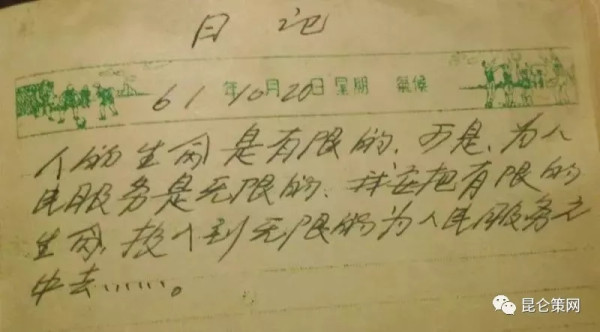 日记
61年10月20日 星期 氣候
人的生命是有限的、可是、为人
民服务是无限的、我要把有限的
生命、投入到无限的为人民服务之
中去……。
昆仑策网